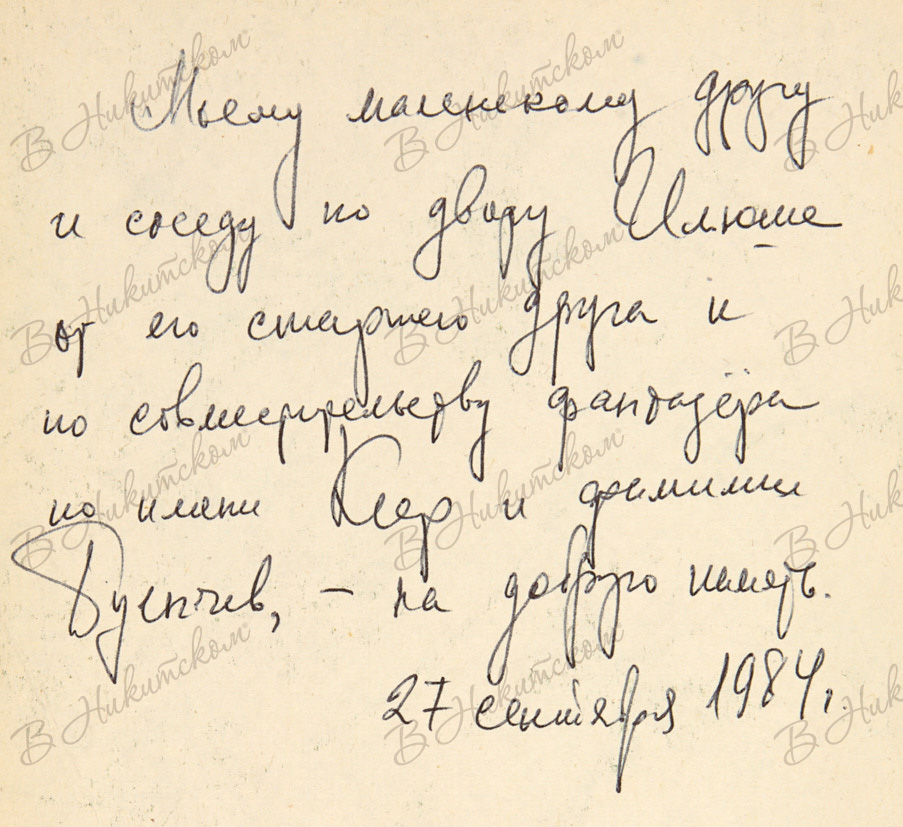 Моему маленькому другу
и соседу по двору Илюше
от его старшего друга и
по совместительству фантазёра
по имени Кир и фамилии
Булычев, – на добрую память.
27 сентября 1984 г.
В Никитском